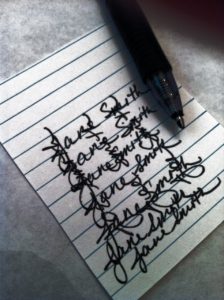 Jane Smith
Janis Smith
Jane Smith
Jane Smith
Jane Smith
Jane Smith
Jane Smith